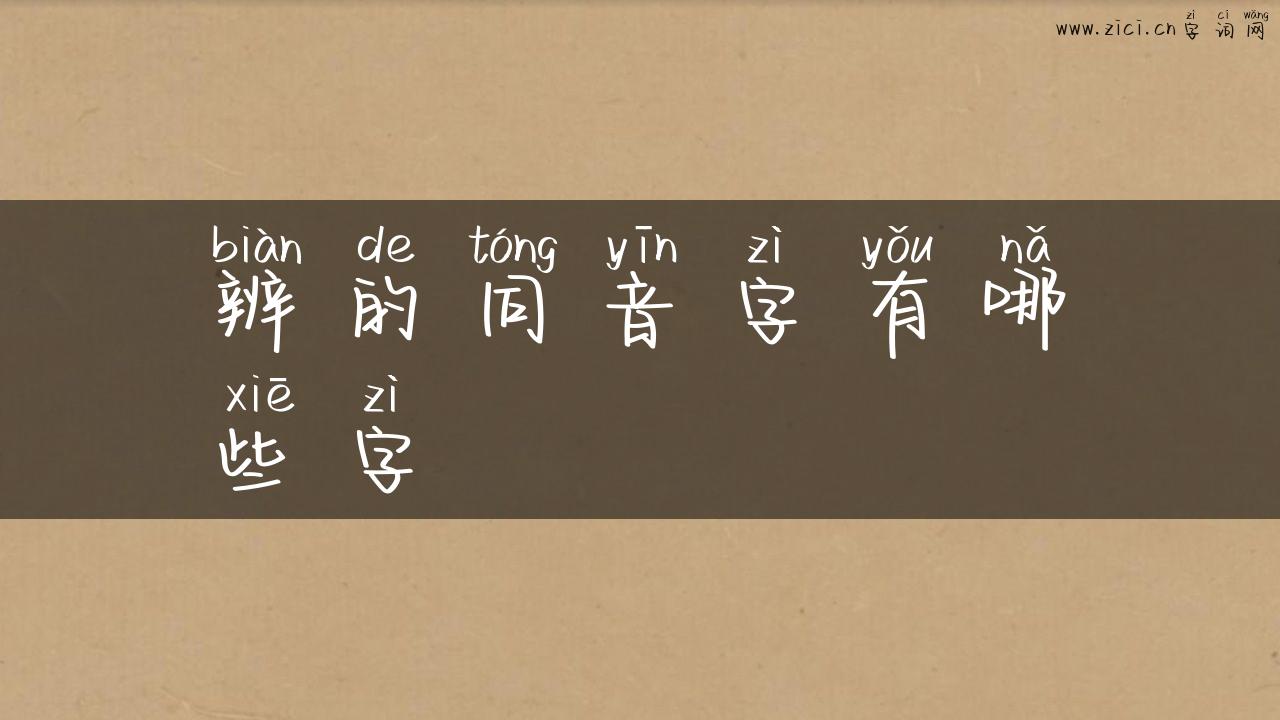 zì cí wǎng
www.zici.cn 字 词 网
biàn de tóng yīn zì yǒu nǎ
辨 的 同 音 字 有 哪
xiē zì
些 字